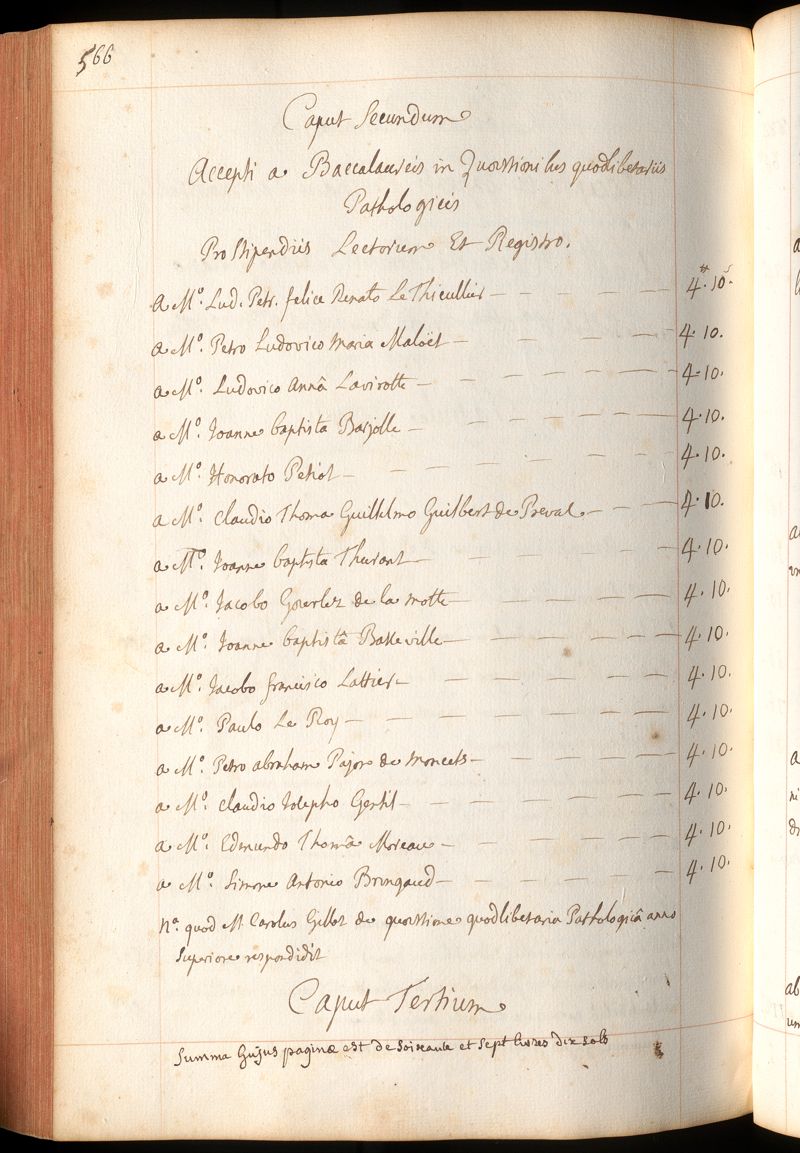 566
Caput Secundum
Accepti a Baccalaureis in Quæstionibus quodlibetariis
Pathologicis
Pro Stipendiis Lectorum Et Registro.
a M.º Lud. Petr. felice Renato Le Thieullier — 4.# 10.s
a M.º Petro Ludovico Maria Maloët — 4. 10.
a M.º Ludovico Annâ Lavirotte — 4. 10.
a M.º Joanne baptista Barjolle — 4. 10.
a M.º Honorato Petiot — 4. 10.
a M.º Claudio Thoma Guillelmo Guilbert de Préval — 4. 10.
a M.º Joanne baptista Thurant — 4. 10.
a M.º Jacobo Gourlez de la motte — 4. 10.
a M.º Joanne baptistâ Basseville — 4. 10.
a M.º Jacobo francisco Lattier — 4. 10.
a M.º Paulo Le Roy — 4. 10.
a M.º Petro abraham Pajon de moncets — 4. 10.
a M.º Claudio Josepho Gentil — 4. 10.
a M.º Edmundo Thomâ Moreau — 4. 10.
a M.º Simone Antonio Bringaud — 4. 10.
Nª. quod M. Carolus Gillot de quæstione quodlibetaria Pathologicâ anno
superiore respondidit
Caput Tertium
Summa hujus paginæ est de soixante et sept livres dix sols